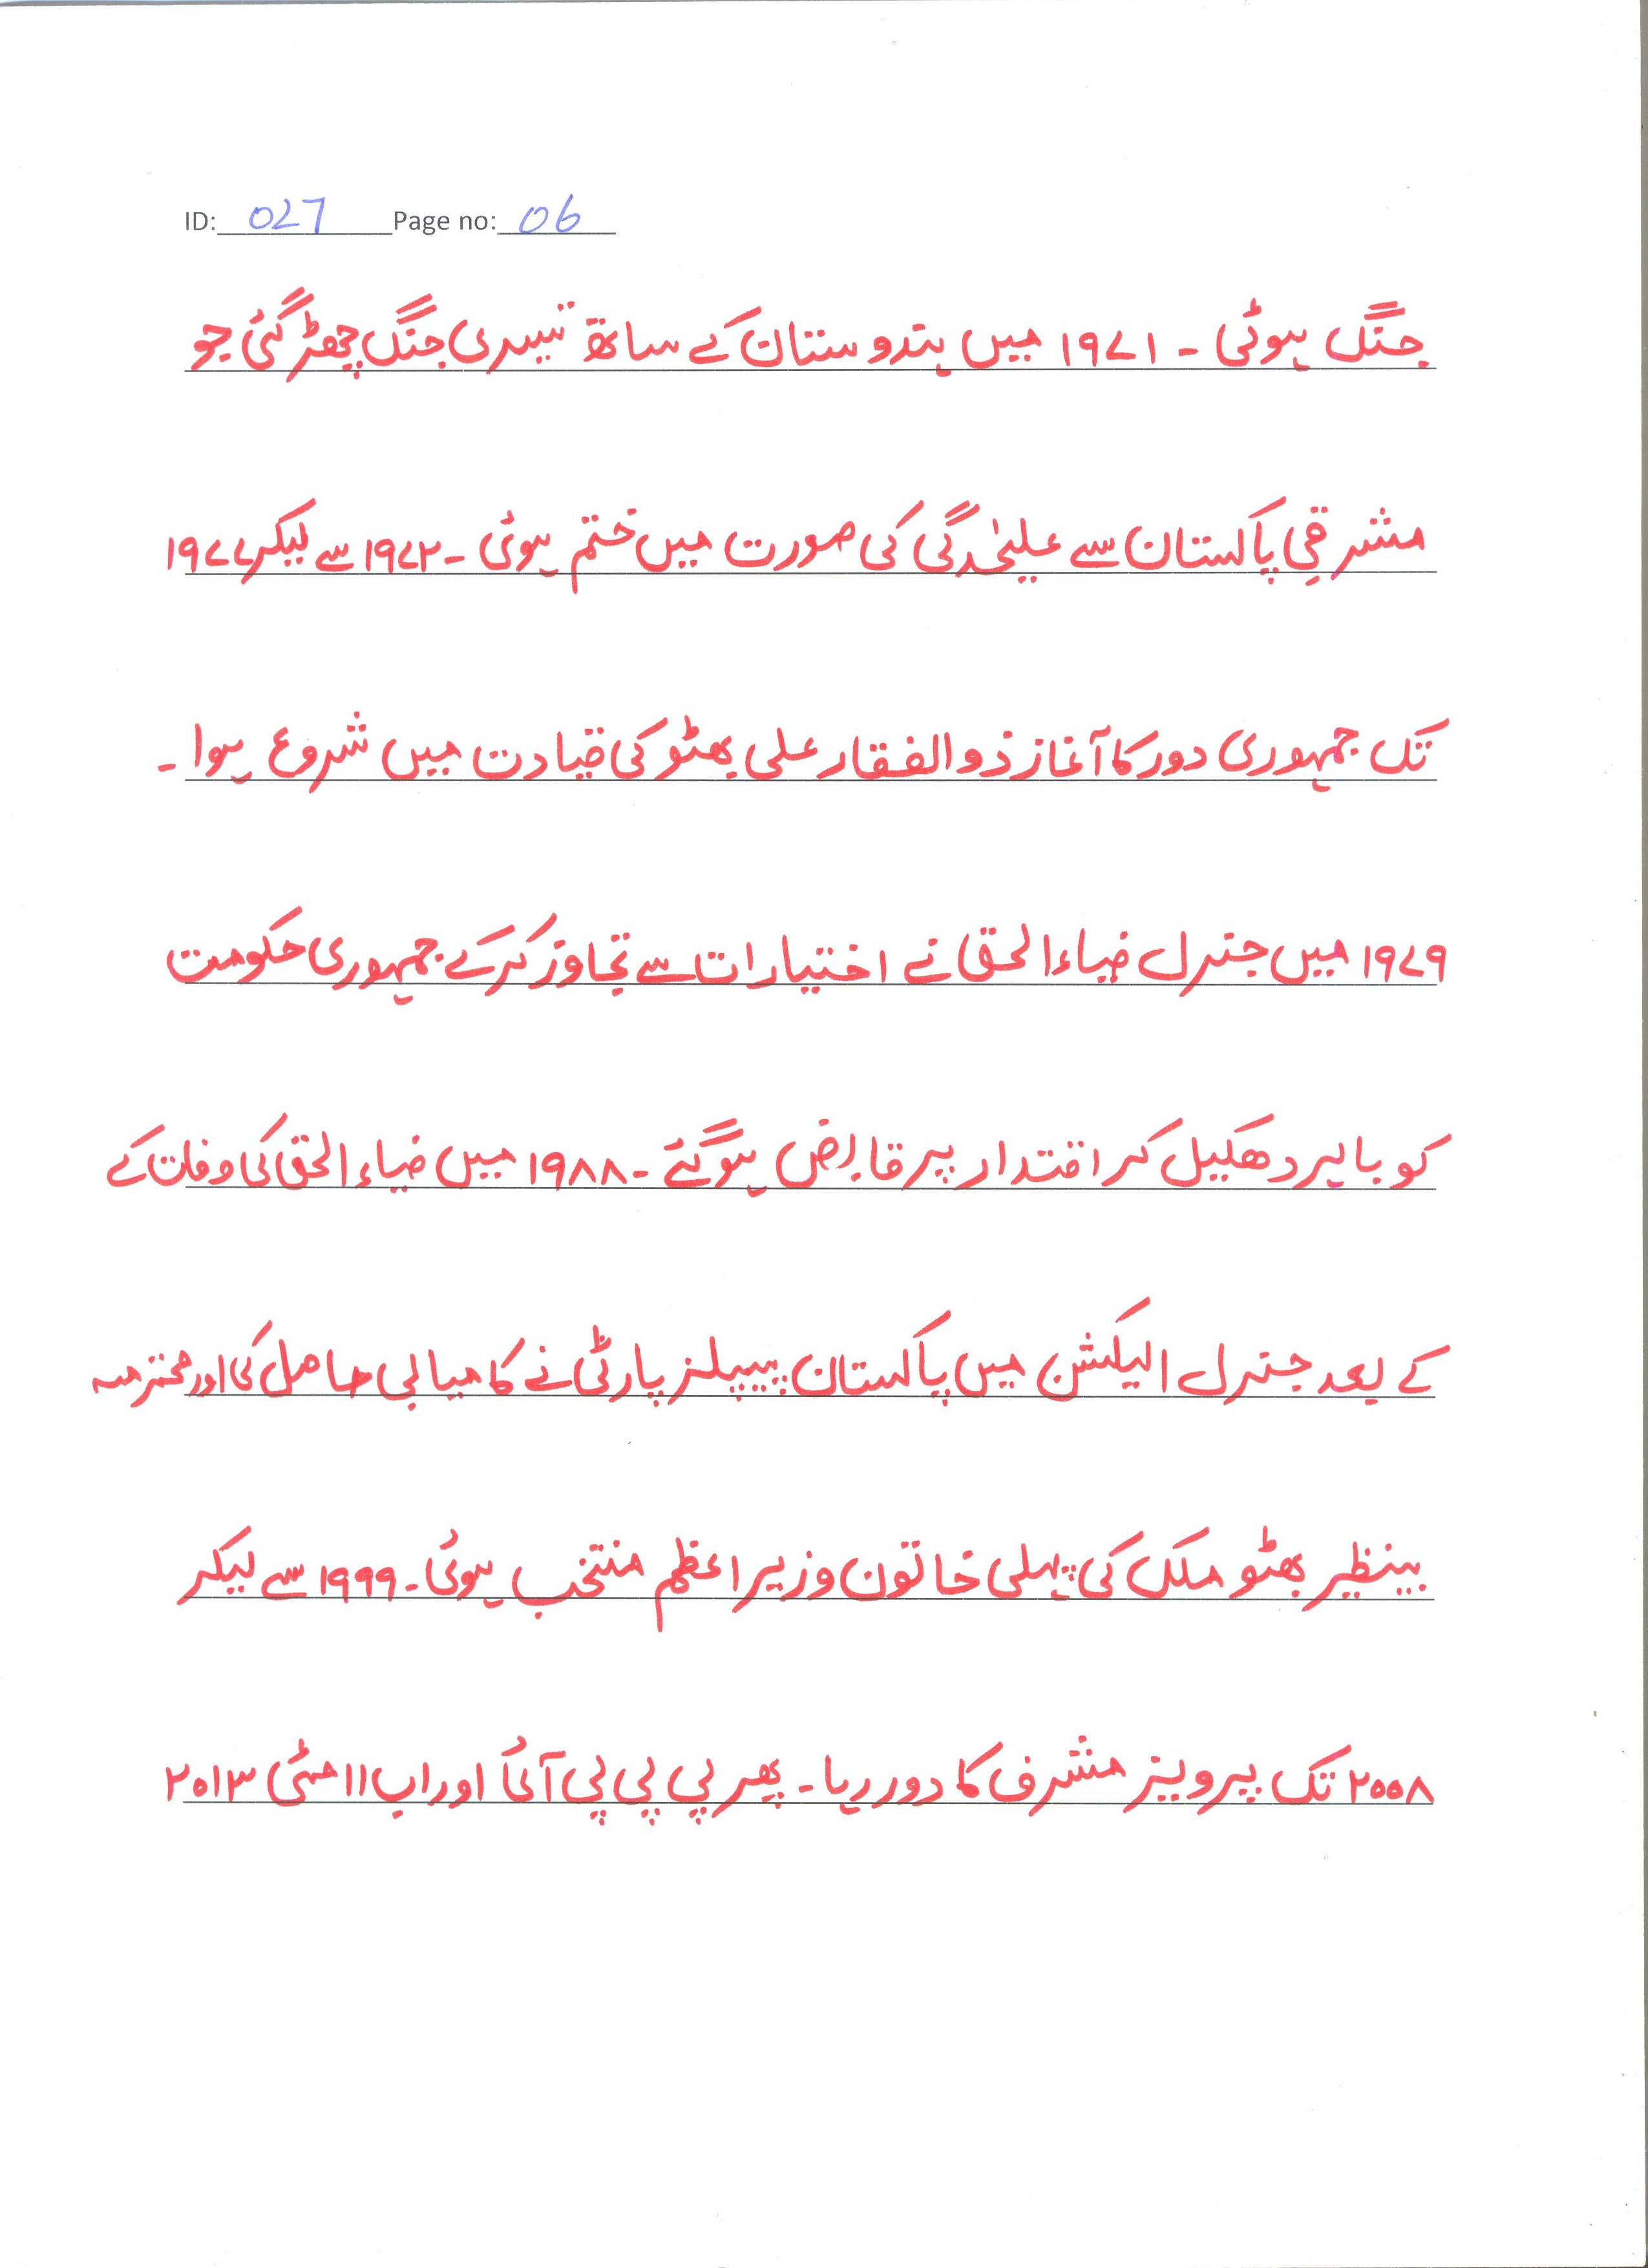 ID: 027 Page no: 06
جنگ ہوئی ۔ ۱۹۷۱ میں ہندوستان کے ساتھ تیسری جنگ چھڑ گئی جو
مشرقی پاکستان سے علیٰحدگی کی صورت میں ختم ہوئی ۔ ۱۹۷۲ سے لیکر ۱۹۷۷
تک جمہوری دور کا آغاز ذوالفقار علی بھٹو کی قیادت میں شروع ہوا ۔
۱۹۷۹ میں جنرل ضیاء الحق نے اختیارات سے تجاوز کر کے جمہوری حکومت
کو باہر دھکیل کر اقتدار پر قابض ہو گئے ۔ ۱۹۸۸ میں ضیاء الحق کی وفات کے
کے بعد جنرل الیکشن میں پاکستان پیپلز پارٹی نے کامیابی حاصل کی اور محترمہ
بینظیر بھٹو ملک کی پہلی خاتون وزیراعظم منتخب ہوئی ۔ ۱۹۹۹ سے لیکر
۲۰۰۸ تک پرویز مشرف کا دور رہا ۔ پھر پی پی پی آئی اور اب ۱۱ مئی ۲۰۱۳